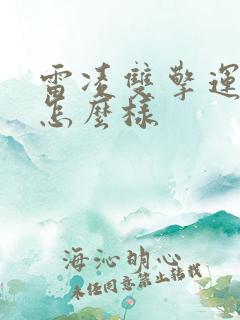 雷凌雙擎運
怎麼樣
海沁明心
未经同意禁止转载